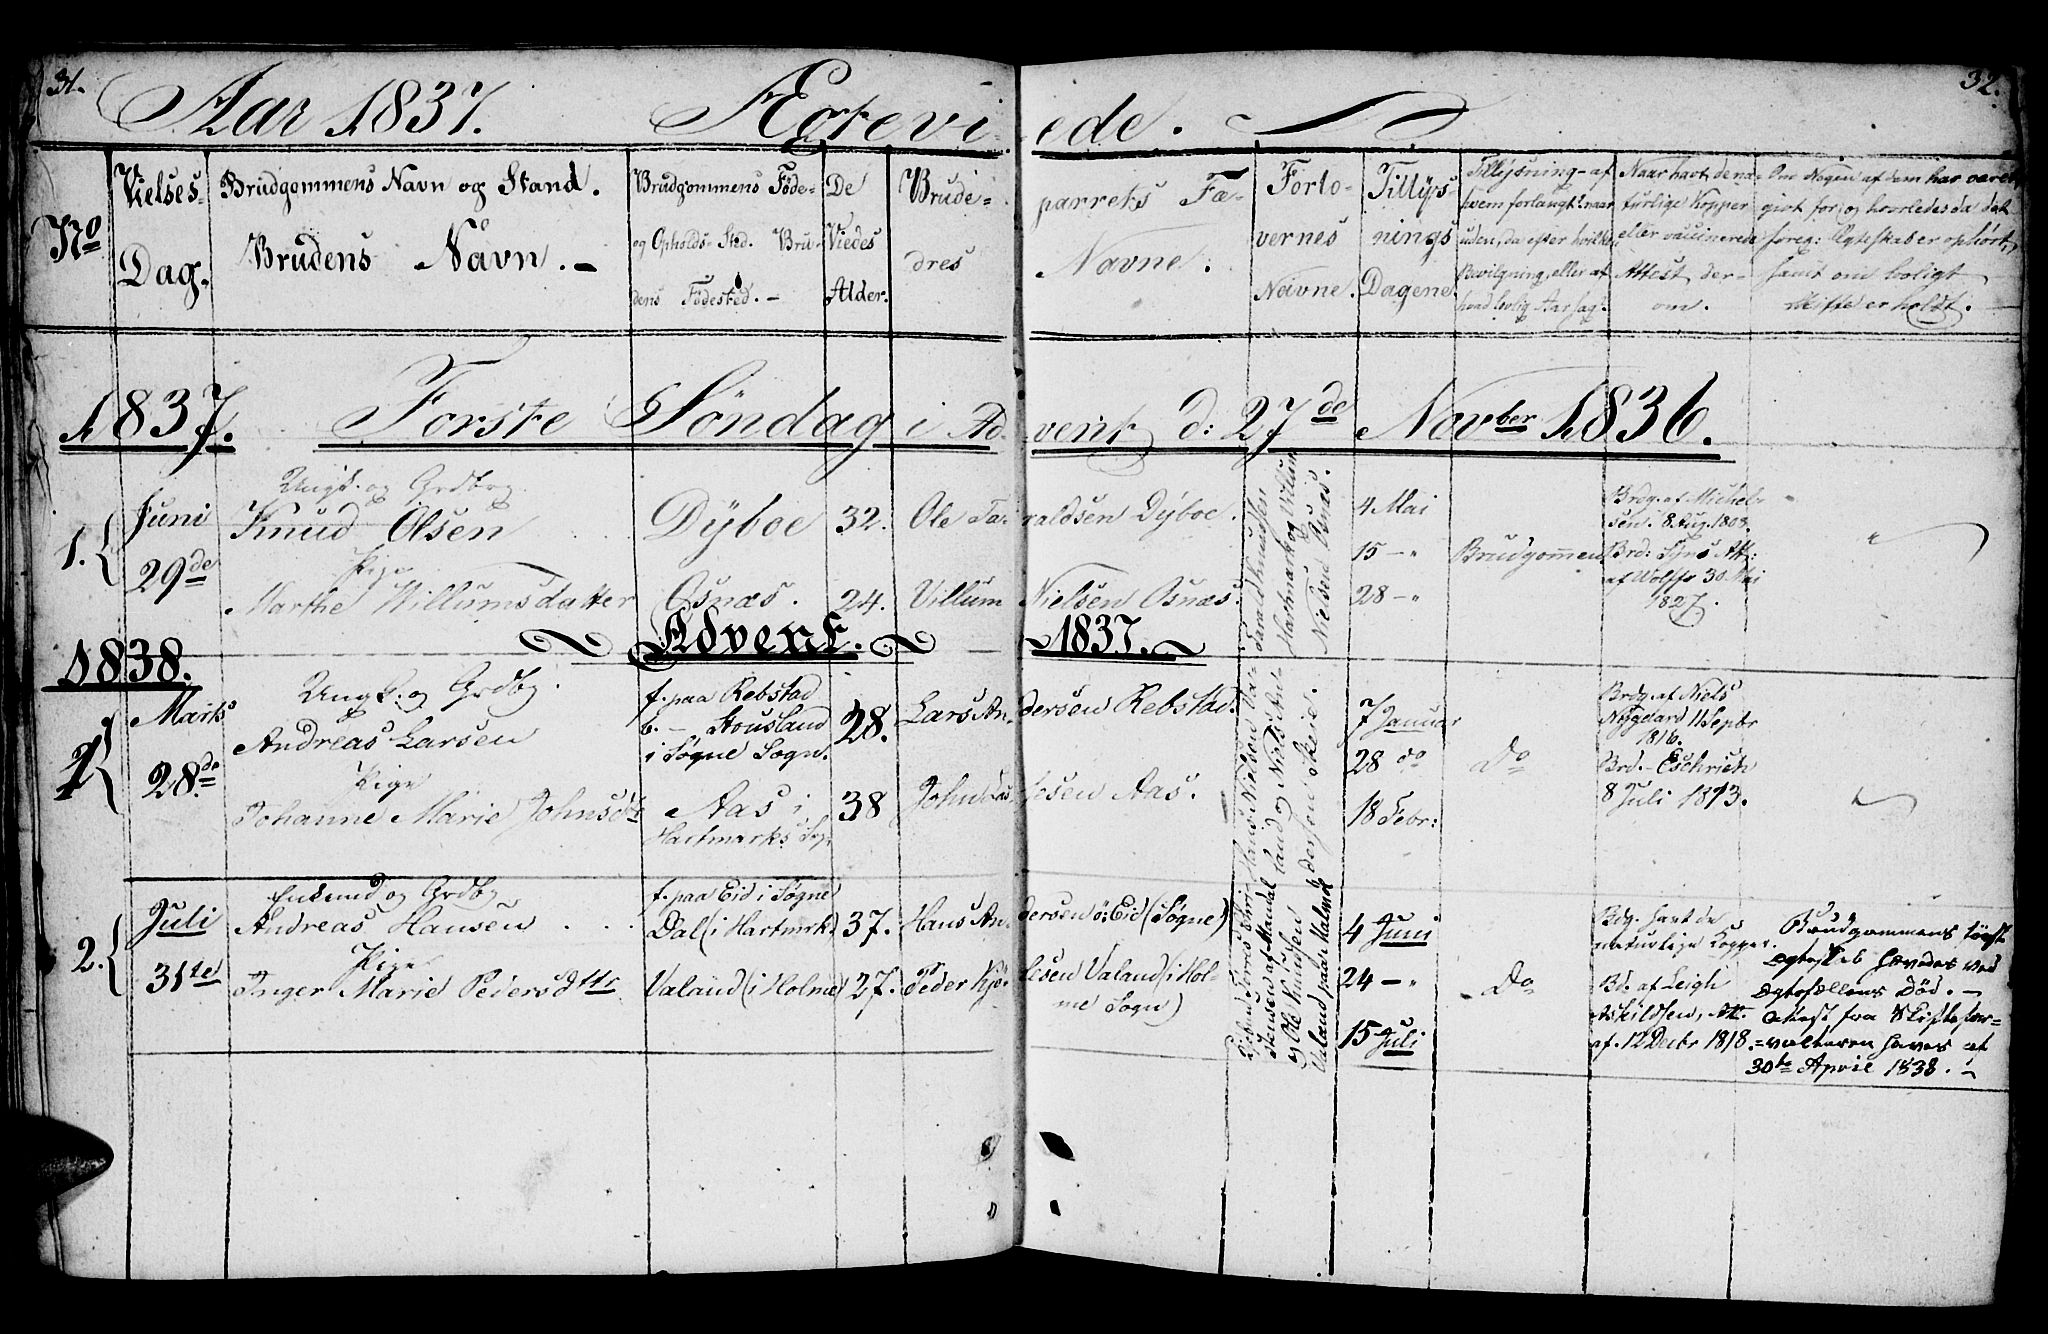 31.
32.
Aar 1837. Ægtevi- ede.
No
Vielses-
Dag.
Brudgommens Navn og Stand.
Brudens Navn.
Brudgommens Føde-
og Opholds-Sted. Bru-
dens Fødested.
De
Viedes
Alder.
Brude- parrets Fæ-
dres Navne.
Forlo-
vernes
Navne.
Tillÿs-
nings
Dagene.
Tillysning af
hvem forlangt? naar
uden, da efter hvilken
Bevilgning, eller af
hvad lovlig Aarsag?
Naar havt de na-
turlige Kopper
eller vaccinerede
Attest der-
om.
Om Nogen af dem har været
givt før, og hvorledes da det
foreg: Ægteskab er ophørt,
samt om lovligt
skifte er holdt.
1837. Forste Söndag i Ad- vent d: 27de Novber 1836.
1.
Juni
29de
Ungk. og Grdbrg.
Knud Olsen
Pige
Marthe Willumsdatter
Dÿboe
Osnæs.
32.
24.
Ole Ta- raldsen Dÿboe.
Villum Nielsen Osnæs.
Tarald Knudsen
Hartmark og Villum
Nielsen Osnæs.
4 Mai
15 - "
28 - "
Brudgommen
Brdg. af Michel-
sen 8 Aug. 1808.
Brd: Syns Att:
af Wolff 30 Mai
1827.
"
1838.
Advent. 1837.
1
Marts
28de
Ungk. og Grdbg.
Andreas Larsen
Pige
Johanne Marie Johnsdtr
f. paa Rebstad
b. - Stousland
i Søgne Sogn.
Aas i
Hartmarks Sog.
28.
38
Lars An- dersen Rebstad.
John
sen Aas.
7 Januar
28 do
18 Febr:
Do
Brdg. af Niels
Nygaard 11 Septbr
1816.
Brd. - Eschrich
8 Juli 1813.
2.
Juli
31te
Enkmd og Grdbg
Andreas Hansen
Pige
Inger Marie Pedersdttr
f. paa Eid i Søgne
Dal (i Hartmrk)
Valand (i Holme)
37.
27.
Hans An- dersen ö: Eid (Søgne)
Peder Kjö- lesen Valand (i Hol-
me Sogn)
og Ole Knudsen
Valand paa Halmed
4 Juni
24 - "
15 Juli
Do
Bdg. havt de
naturlige Kopper.
Bd. af Leigh
Askildsen, Att.
af 12 Decbr 1818.
Brudgommens først
Egteskab hævedes ved
Egtefællens Död. -
Attest fra Skiftefor-
valteren haves af
30te April 1838.